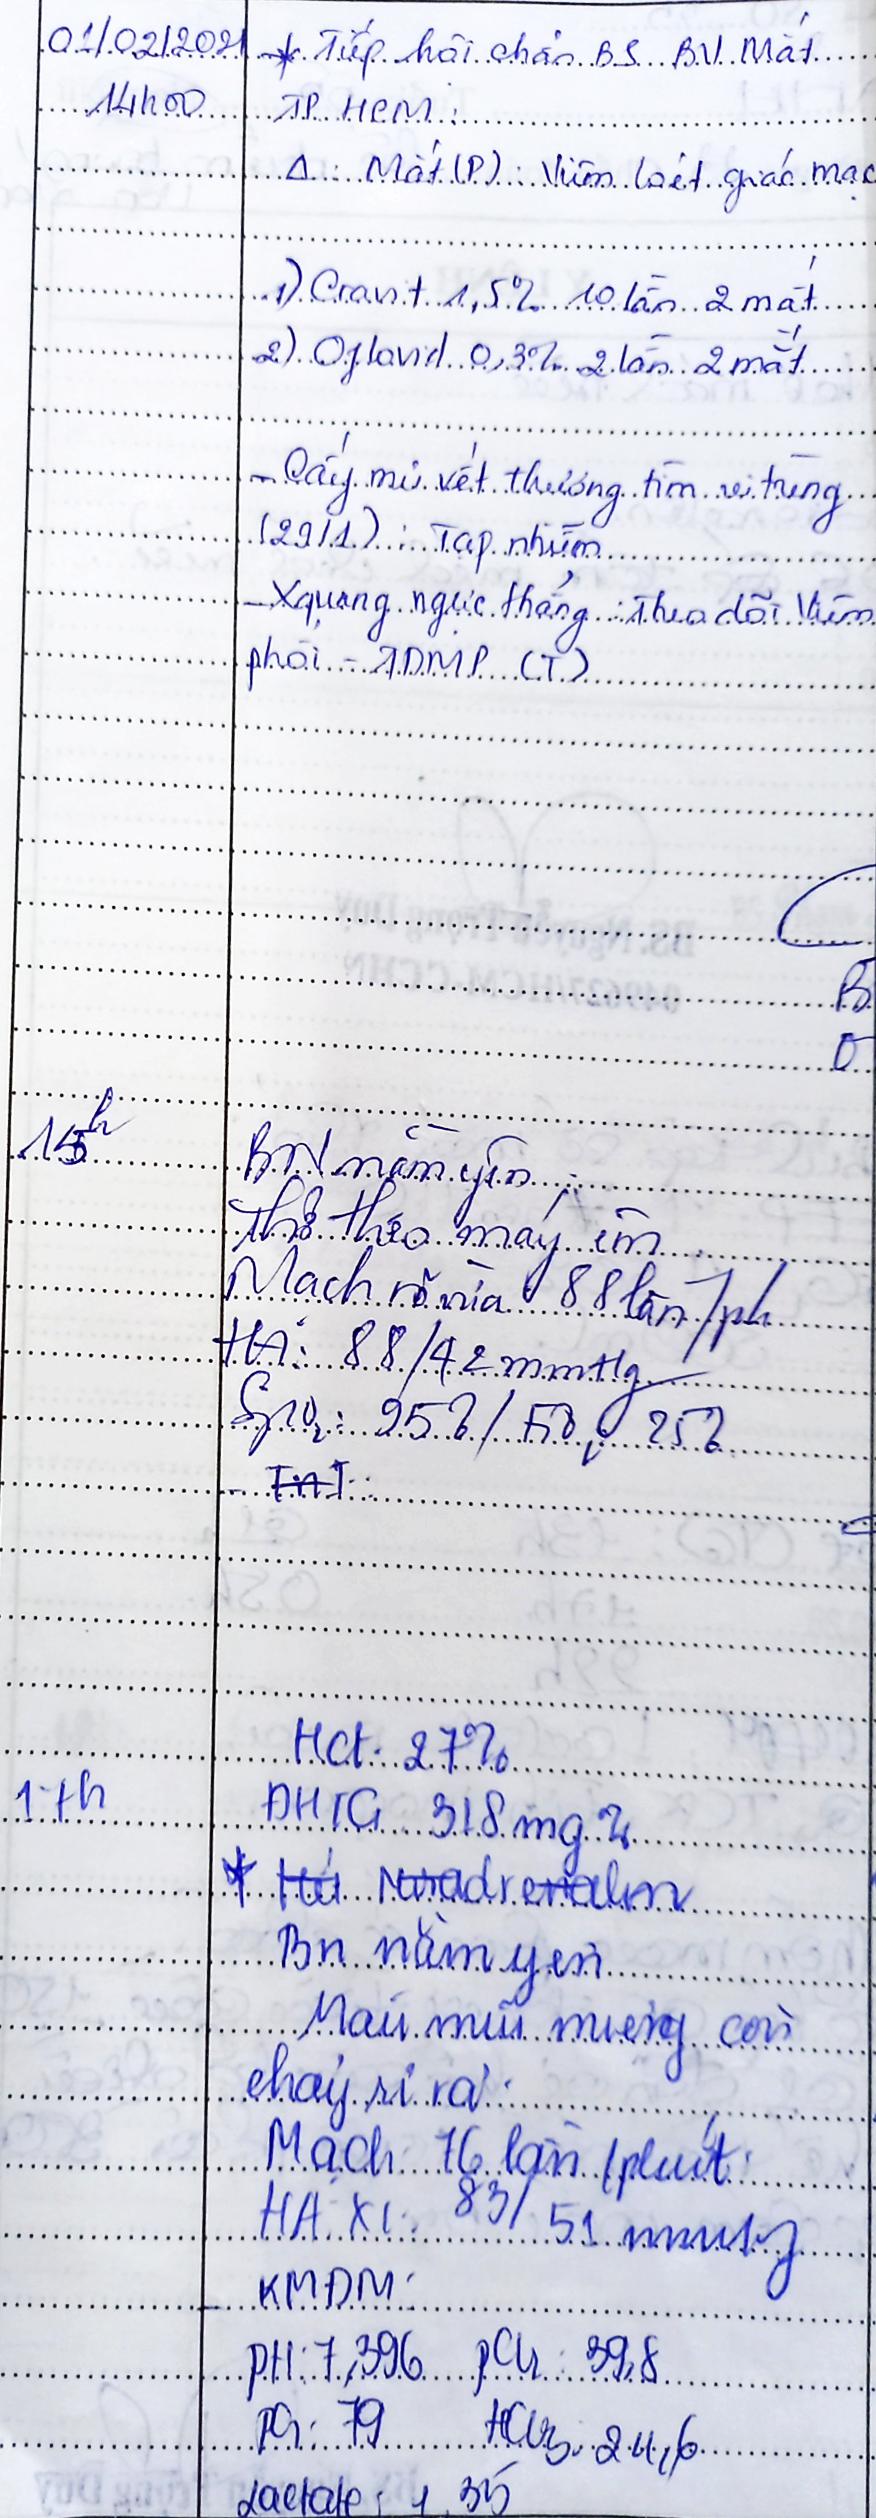 01/02/2021 * Tiếp hội chẩn BS BV Mắt
14h00 TP HCM:
Δ: Mắt (P): Viêm loét giác mạc
1) Cravit 1,5% 10 lần 2 mắt
2) Oflovid 0,3% 2 lần 2 mắt
- Cấy mủ vết thương tìm vi trùng
(29/1): Tạp nhiễm
- Xquang ngực thẳng: Theo dõi Viêm
phổi - TDMP (T)
15h BN nằm yên
Thở theo máy êm
Mạch rõ vừa 88 lần/ph
HA: 88/42 mmHg
SpO2: 95%/FiO2 25%
- TnT:
Hct: 27%
17h ĐHTG 318 mg%
* Noradrenalin
Bn nằm yên
Máu mũi miệng còn
chảy rỉ rả.
Mạch: 76 lần/phút
HA XL: 83/51 mmHg
- KMĐM:
pH: 7,396 pCO2: 39,8
pO2: 79 HCO3: 24,6
Lactate: 1,35